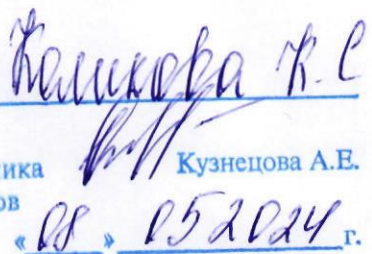 Коликова К.С
ника Кузнецова А.Е.
ов
«08» 052024 г.